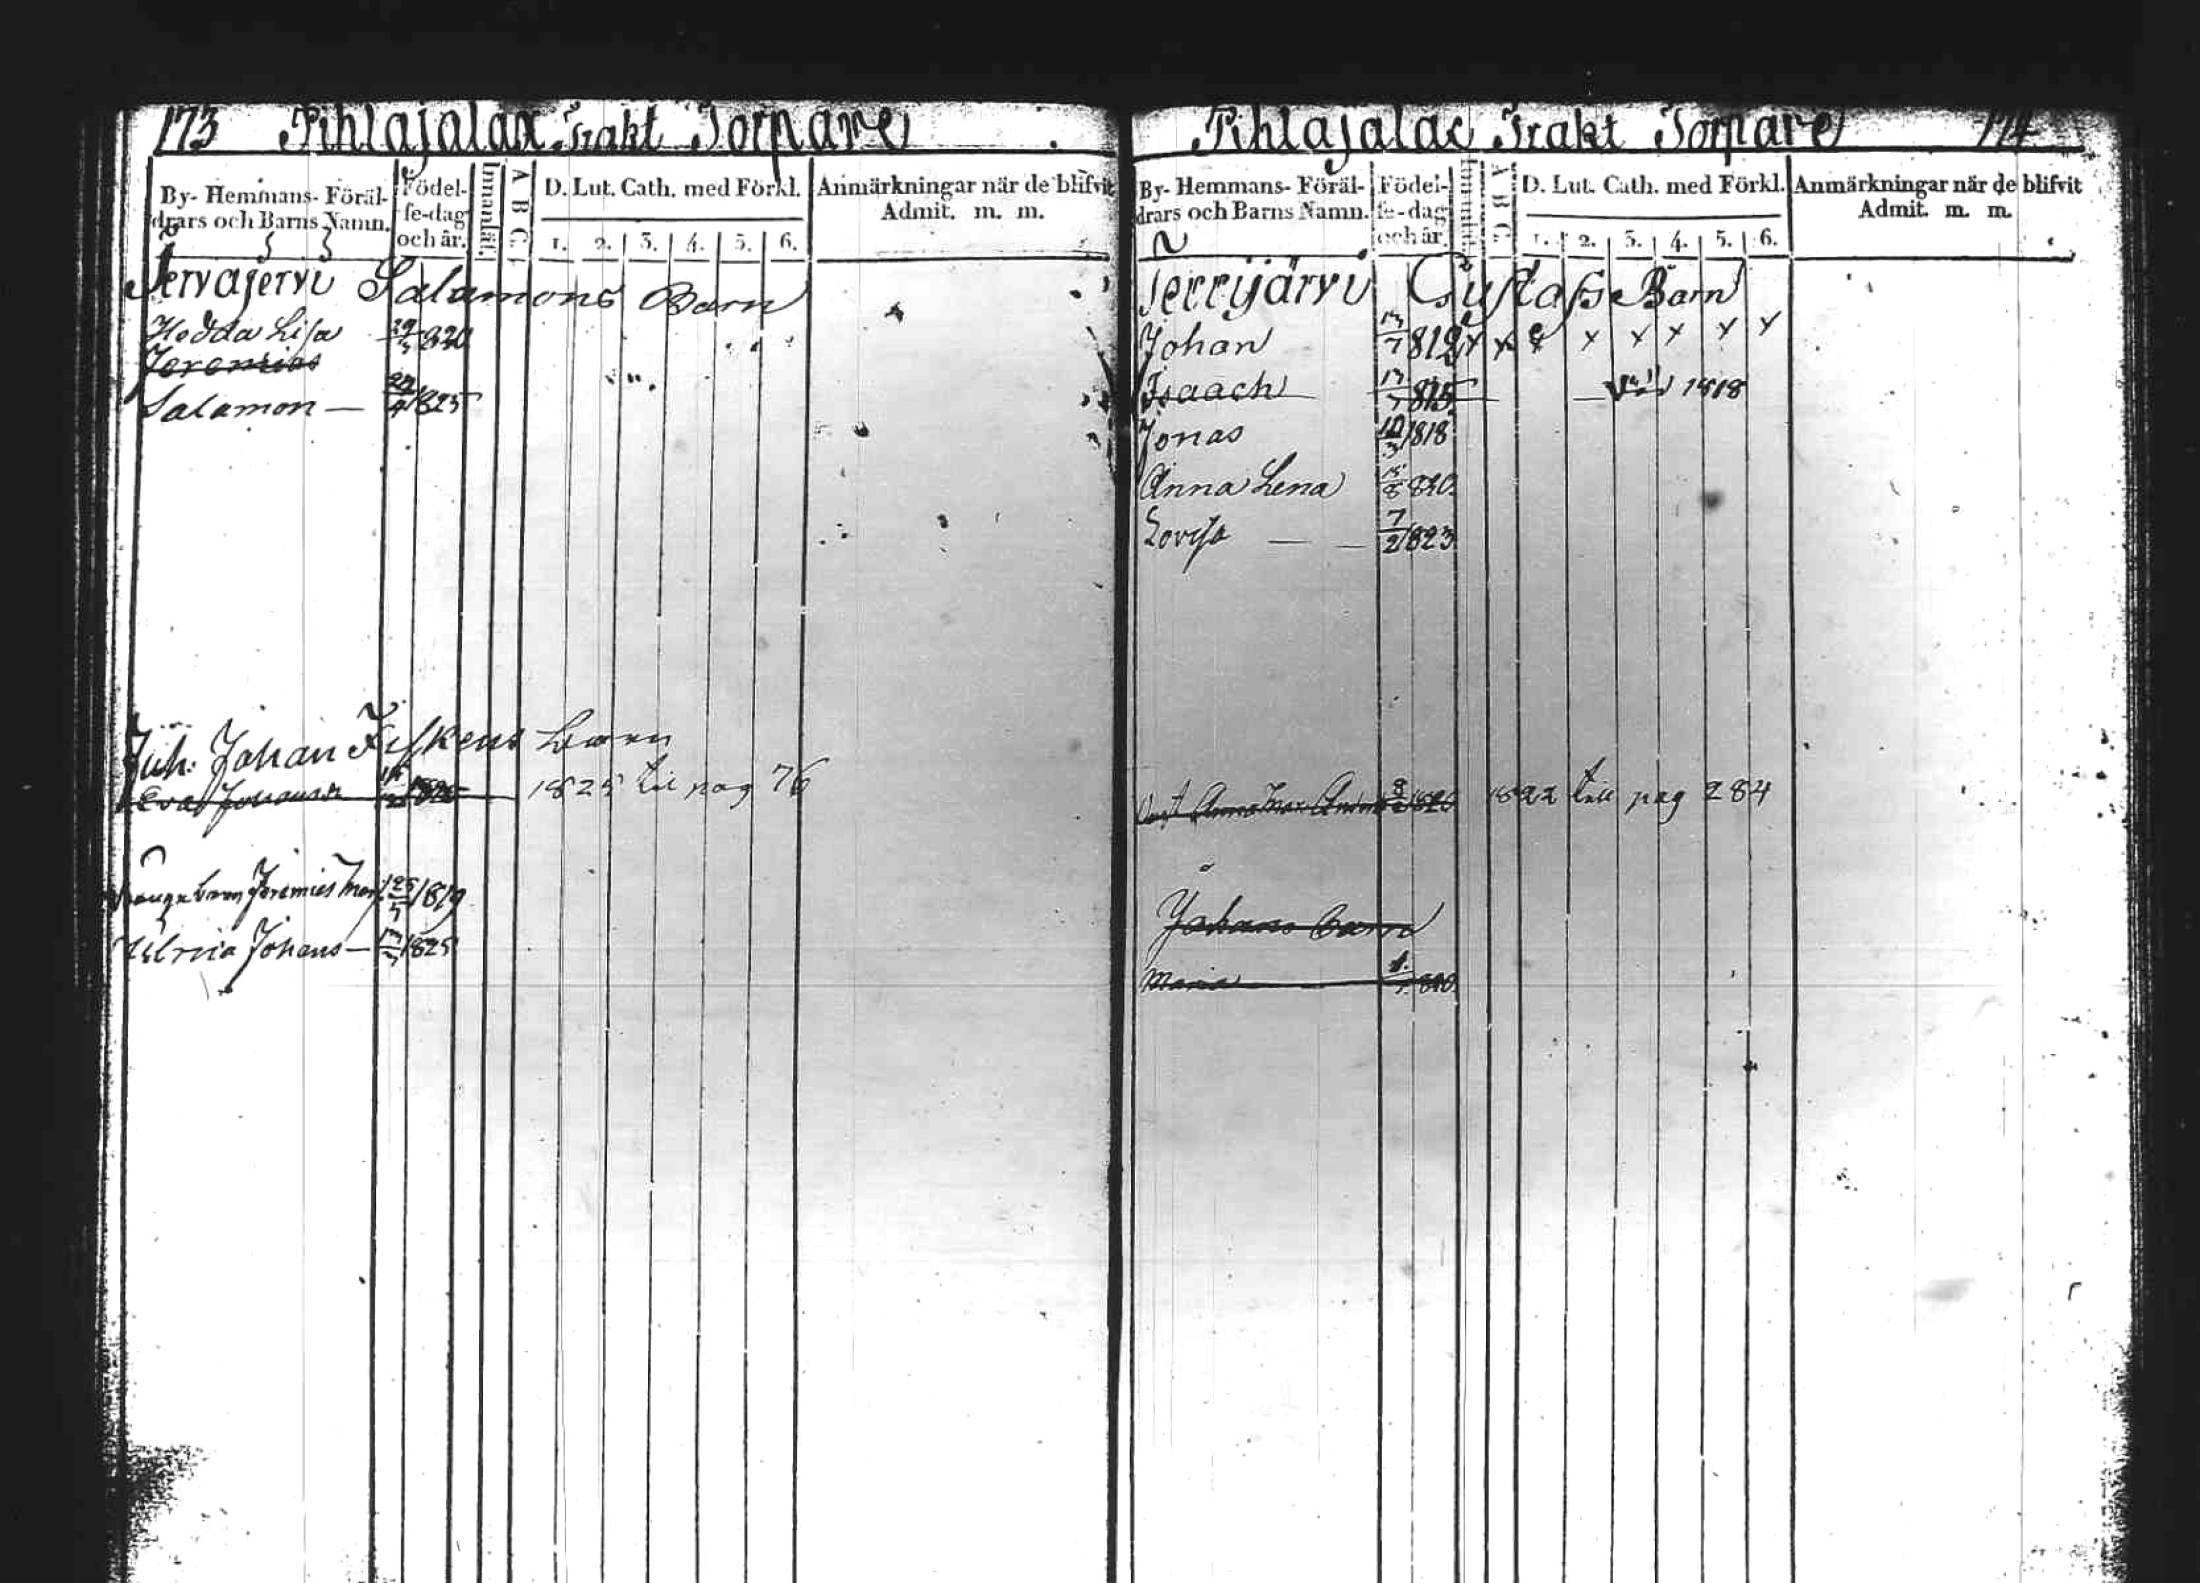 173 Pihlajalax Trakt Torpare
By- Hemmans- Föräl-
drars och Barns Namn.
Födel-
se-dag
och år.
Innanläs.
A B C.
D. Lut. Cath. med Förkl.
1. 2. 3. 4. 5. 6.
Anmärkningar när de blifvit
Admit. m. m.
Jervajervi Salamons Barn
Hedda Lisa 820
Jeremias
Salamon — 1825
Inh. Johan Fiskens barn
Eva Johansdr 1825 til pag 76
barn Jeremies 25/5 1819
Ulrica Johans — 1825
Pihlajalax Trakt Torpare 174
By- Hemmans- Föräl-
drars och Barns Namn.
Födel-
se-dag
och år.
A B C
D. Lut. Cath. med Förkl.
1. 2. 3. 4. 5. 6.
Anmärkningar när de blifvit
Admit. m. m.
Terrijärvi Gustafs Barn
Johan 13/7 812 x x x x x x x x
Isaach 815 — 1818
Jonas 10/3 1818
Anna Lena 820
Lovisa — — 7/2 1823
Anna 1820 1822 till pag 284
Johans barn
Maria